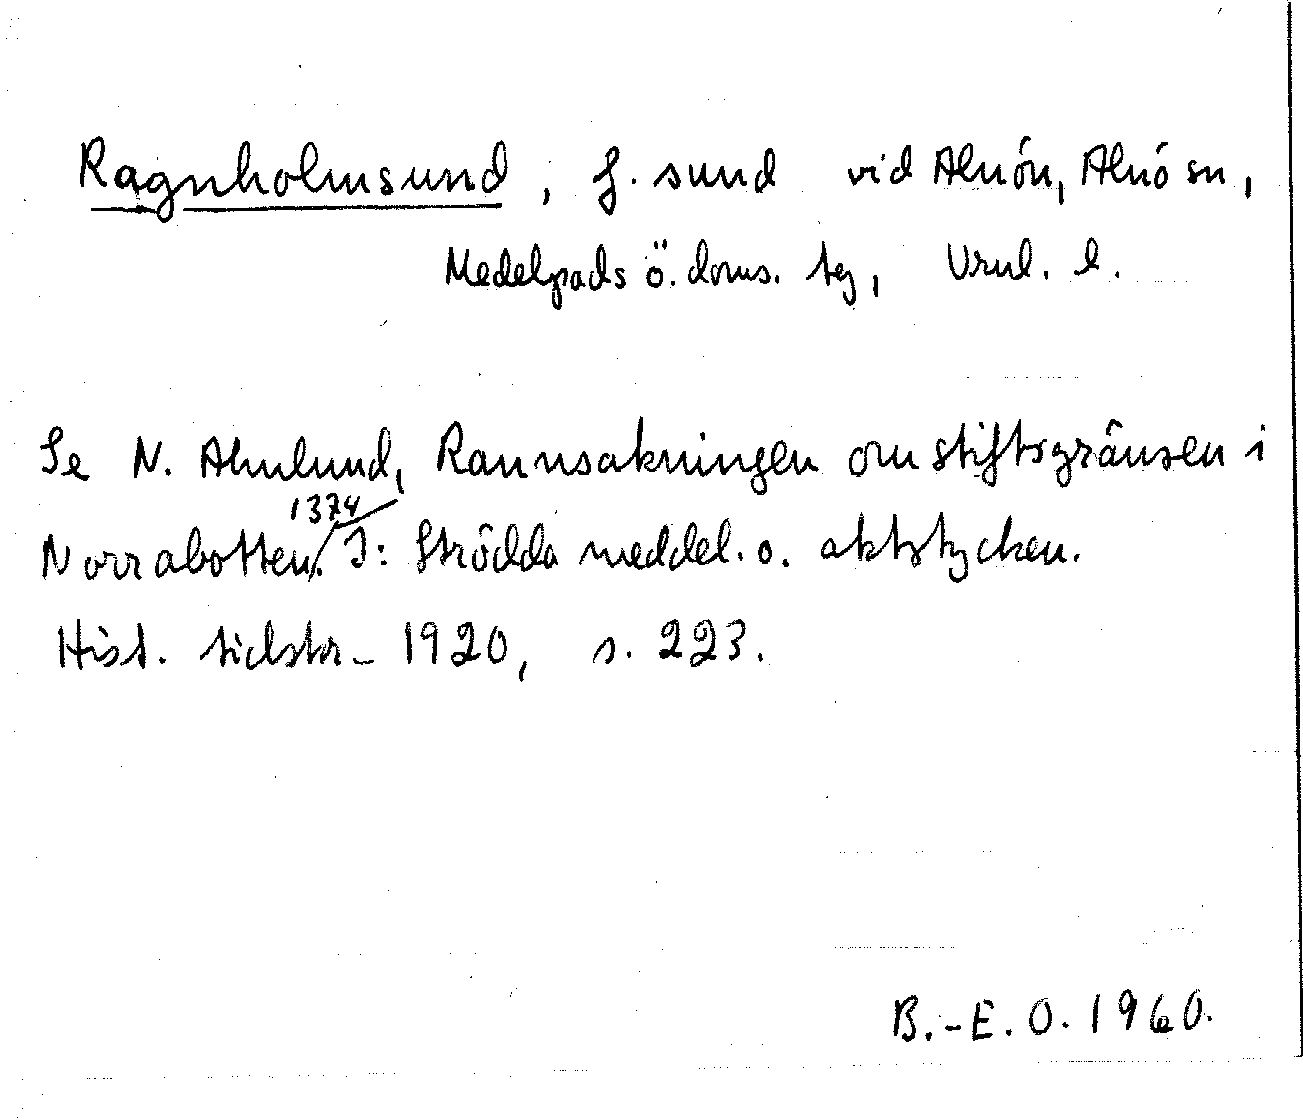 Ragnholmsund, f. sund vid Alnön, Alnö sn,
Medelpads ö. doms. tg, Vrnl. l.
Se N. Ahnlund, Rannsakningen om stiftsgränsen i
Norrabotten 1374. I: Strödda meddel. o. aktstycken.
Hist. tidskr. 1920, s. 223.
B.-E. O. 1960.